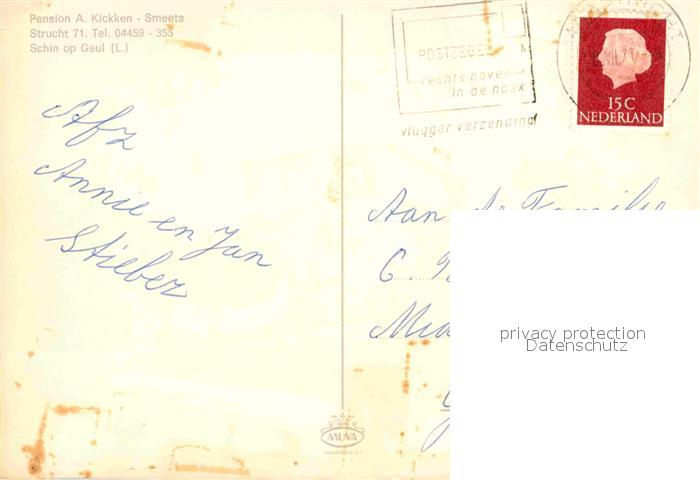 Pension A. Kickken - Smeets
Strucht 71. Tel. 04459 - 355
Schin op Geul (L.)
POSTZEGEL
rechts boven
in de hoek
vlugger verzending
15 C
NEDERLAND
Afz
Annie en Jan
Stieber
Aan de Familie
C.
privacy protection
Datenschutz
MUVA